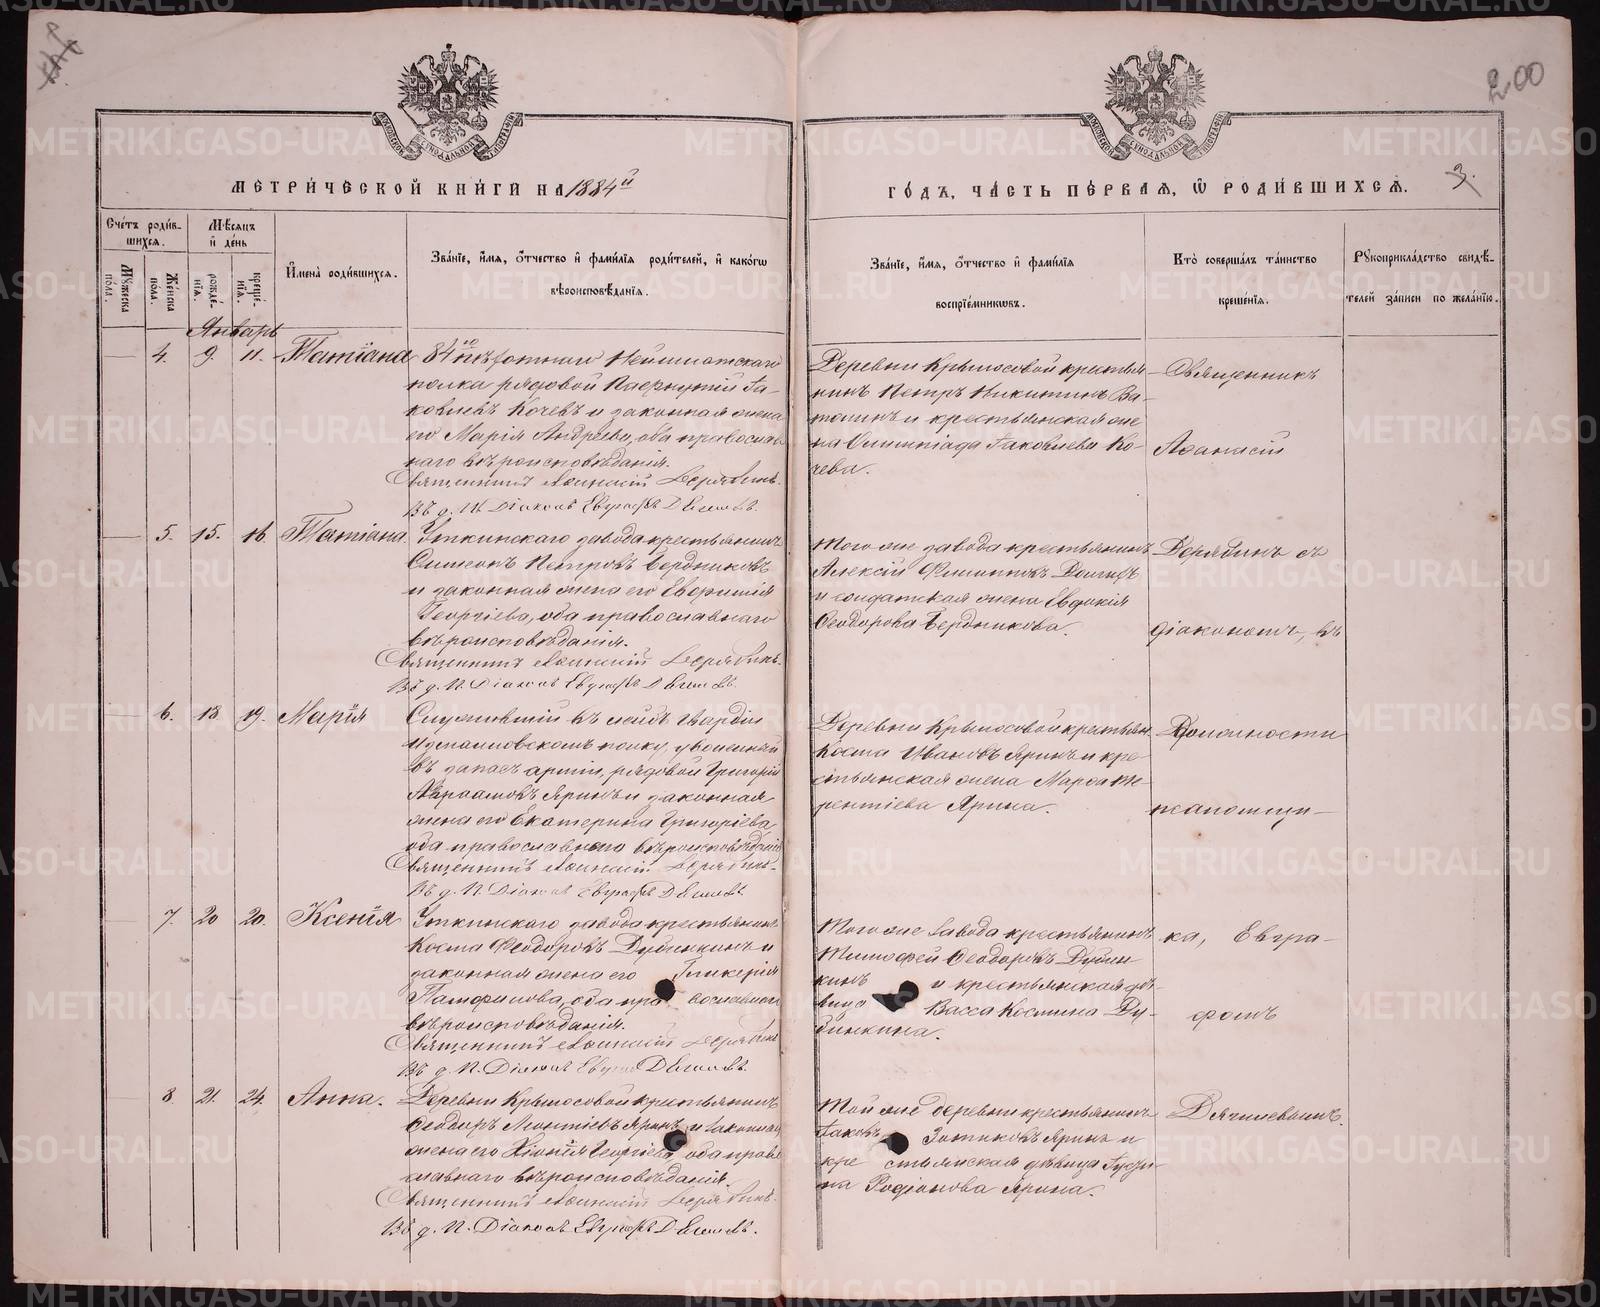 200
МЕТРИ́ЧЕСКОЙ КНИ́ГИ НА 1884й
ГО́ДЪ, ЧА́СТЬ ПЕ́РВАѦ, Ѡ РОДИ́ВШИХСѦ. 3.
Сче́тъ роди́в-
шихсѧ.
Мѣ́сѧцъ
и҆ де́нь
Мꙋ́жеска
по́ла.
Же́нска
по́ла.
рожде́-
нїѧ.
креще́-
нїѧ.
И҆мена̀ роди́вшихсѧ.
Зва́нїе, и҆́мѧ, ѻ҆́тчество и҆ фами́лїѧ роди́телей, и҆ како́гѡ
вѣроисповѣ́данїѧ.
Зва́нїе, и҆́мѧ, ѻ҆́тчество и҆ фами́лїѧ
воспрїе́мникѡвъ.
Кто̀ соверша́лъ та́инство
креще́нїѧ.
Рꙋкоприкла́дство свидѣ́-
телей за́писи по жела́нїю.
Январь
4. 9. 11. Татіана
84го пѣхотнаго
полка рядовой Пафнутій Іа-
ковлевъ Кочевъ и законная жена
его Марія Андреева, оба православ-
наго вѣроисповѣданія.
Священникъ Аѳанасій Дерябинъ.
Въ д. П. Діаконъ Евграфъ
Деревни Крылосовой крестья-
нинъ Петръ Никитинъ Ва-
и крестьянская же-
на Олимпіада Іаковлева Ко-
чева.
Священникъ
Аѳанасій
5. 15. 16. Татіана
Уткинскаго завода крестьянинъ
Симеонъ Петровъ Бердниковъ
и законная жена его
Георгіева, оба православнаго
вѣроисповѣданія.
Священникъ Аѳанасій Дерябинъ.
Въ д. П. Діаконъ Евграфъ
Того же завода крестьянинъ
Алексій Филипповъ
и солдатская жена Евдокія
Ѳеодорова Бердникова.
Дерябинъ съ
діакономъ, въ
6. 18 19. Марія
Служившій въ лейбъ гвардіи
Измаиловскомъ полку, уволенный
въ запасъ арміи, рядовой Григорій
Авраамовъ Яринъ и законная
жена его Екатерина Григоріева,
оба православнаго вѣроисповѣданія
Священникъ Аѳанасій Дерябинъ.
Въ д. П. Діаконъ Евграфъ
Деревни Крылосовой крестьян.
Косма Ивановъ Яринъ и кре-
стьянская жена Марѳа Те-
рентіева Ярина.
Должности
псаломщи-
7. 20 20. Ксенія
Уткинскаго завода крестьянинъ
Косма Ѳеодоровъ Дубинкинъ и
законная жена его Гликерія
Памфилова, оба православнаго
вѣроисповѣданія.
Священникъ Аѳанасій Дерябинъ
Въ д. П. Діаконъ
Того же завода крестьянинъ
Тимоѳей Ѳеодоровъ Дубин-
кинъ и крестьянская дѣ-
вица Васса Космина Ду-
бинкина.
ка, Евгра-
фомъ
8. 21. 24. Анна.
Деревни Крылосовой крестьянинъ
Ѳеодоръ Леонтіевъ Яринъ и законная
жена его Хіонія Георгіева, оба право-
славнаго вѣроисповѣданія.
Священникъ Аѳанасій Дерябинъ.
Въ д. П. Діаконъ Евграфъ
Той же деревни крестьянинъ
Іаковъ Зотиковъ Яринъ и
крестьянская дѣвица
Родіонова Ярина.
METRIKI.GASO-URAL.RU